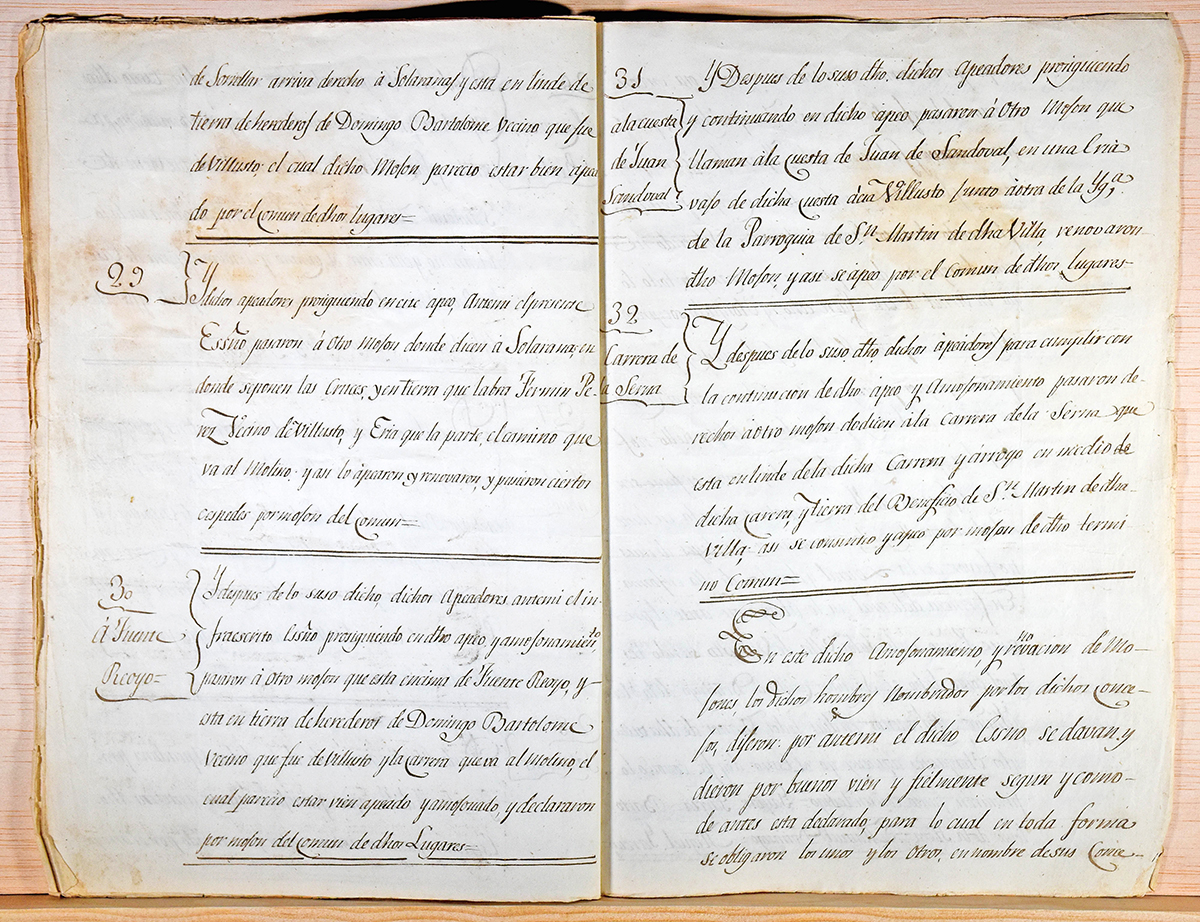 de Sorvillar arriva derecho à Solaranas y esta en linde de
tierra de herederos de Domingo Bartolome Vecino que fue
de Villusto, el cual dicho Moson parecio estar bien àpea
do por el Comun de dhos lugares=
29
Y
dichos apeadores prosiguiendo en este apeo, Antemi el presente
Essño pasaron à otro moson donde dicen à Solarana, en
donde seponen las Cruces, y en tierra que labra Fermin Pe-
rez Vecino de Villusto, y Eria que la parte, el camino que
va al Molino: y asi lo àpearon y renovaron, y pusieron ciertos
cespedes por moson del Comun=
30
À Fuente
Recoyo=
Y despues de lo suso dicho, dichos Apeadores antemi el in-
fraescrito Essño prosiguiendo en dho apeo, y amosonamiento
pasaron à otro moson que esta encima de Fuente Recoyo, y
esta en tierra de herederos de Domingo Bartolome
Vecino que fue de Villusto y la Carrera que và al Molino, el
cual parecio estar vien apeado y amosonado, y declararon
por moson del Comun de dhos Lugares=
31
a la cuesta
de Juan
Sandoval
Y Despues de lo suso dho, dichos Apeadores prosiguiendo
y continuando en dicho àpeo pasaron à Otro Moson que
llaman à la Cuesta de Juan de Sandoval, en una Eria
vajo de dicha Cuesta àcia Villusto junto à otra de la Ygª
de la Parroquia de Sn Martin de dha Villa, renovaron
dho Moson, y asi se àpeo por el Comun de dhos Lugares
32
Carrera de
la Serna
Y despues de lo suso dho, dichos àpeadores para cumplir con
la continuacion de dho apeo y Amosonamiento pasaron de-
rechos à otro moson do dicen à la Carrera de la Serna que
esta en linde de la dicha Carrera y àrroyo en medio de
dicha Carera, y tierra del Beneficio de Sn Martin de dha
Villa: asi se consintio y apeo por moson de dho termi
no Comun=
En este dicho Amosonamiento, y renovacion de Mo-
sones, los dichos hombres Nombrados por los dichos Conce-
jos, dijeron: por antemi el dicho Essno se davan, y
dieron por buenos vien y fielmente segun y como
de antes esta declarado, para lo cual en toda forma
se obligaron los unos y los Otros, en nombre de sus Conce-